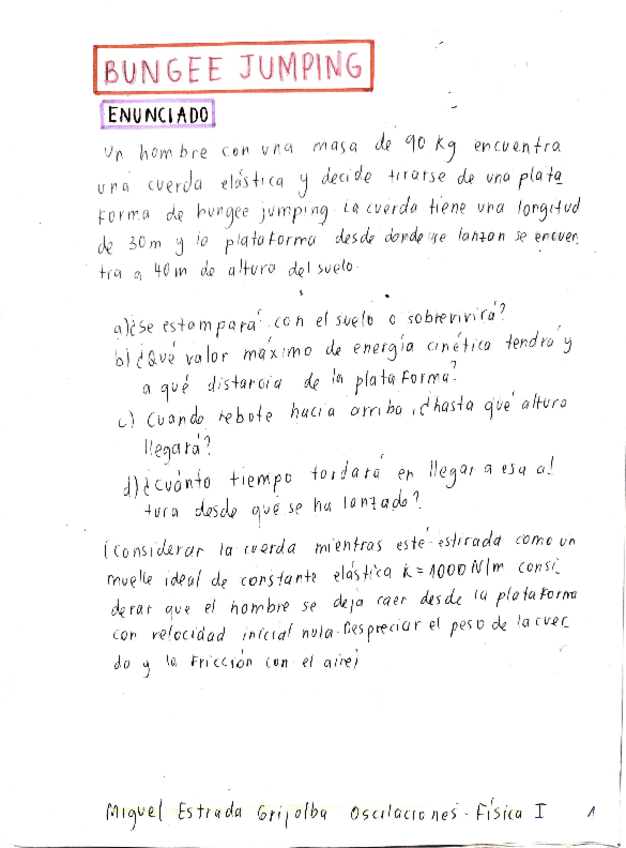 BUNGEE JUMPING
ENUNCIADO
Un hombre con una masa de 90 kg encuentra
una cuerda elástica y decide tirarse de una plata
forma de bungee jumping La cuerda tiene una longitud
de 30m y la plataforma desde donde se lanzan se encuen
tra a 40m de altura del suelo.
a)¿Se estampará con el suelo o sobrevivirá?
b) ¿Qué valor máximo de energía cinético tendrá y
a qué distancia de la plataforma?
c) Cuando rebote hacia arriba, ¿hasta qué altura
llegará?
d)¿Cuánto tiempo tardará en llegar a esa al
tura desde que se ha lanzado?
(Considerar la cuerda mientras esté estirada como un
muelle ideal de constante elástica k=1000 N/m consi
derar que el hombre se deja caer desde la plataforma
con velocidad inicial nula. Despreciar el peso de la cuer
da y la fricción con el aire)
Miguel Estrada Grijalba Oscilaciones - Física I 1